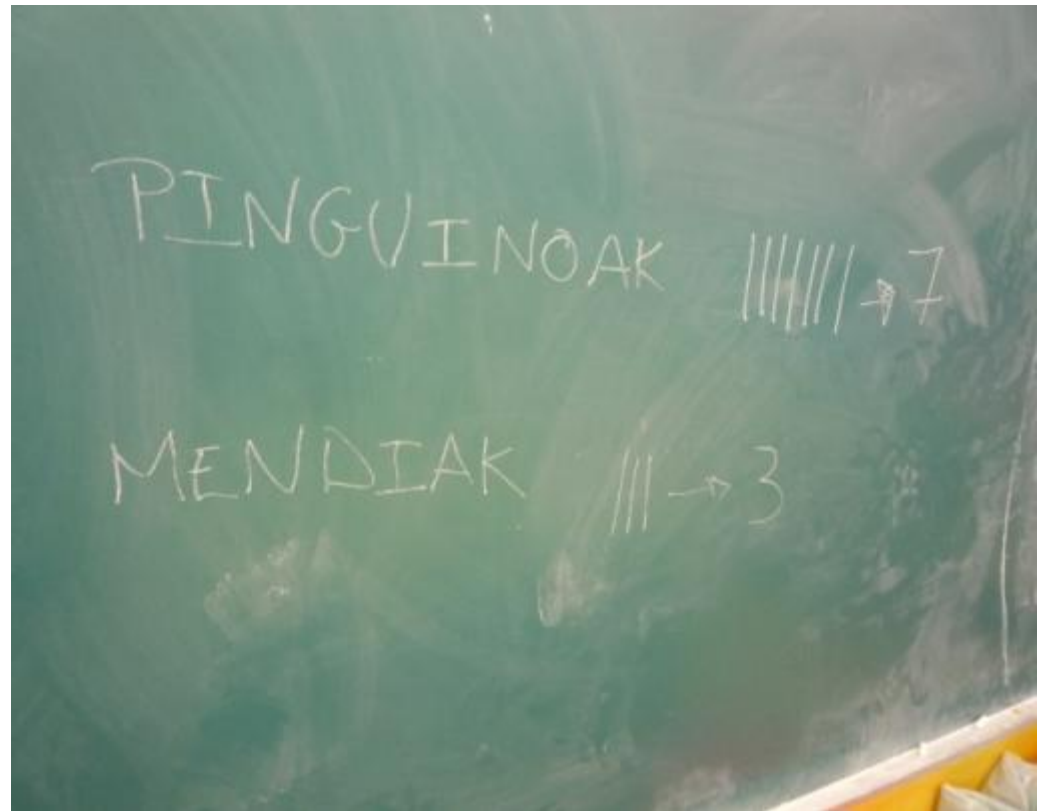 PINGUINOAK ||||||| → 7
MENDIAK ||| → 3